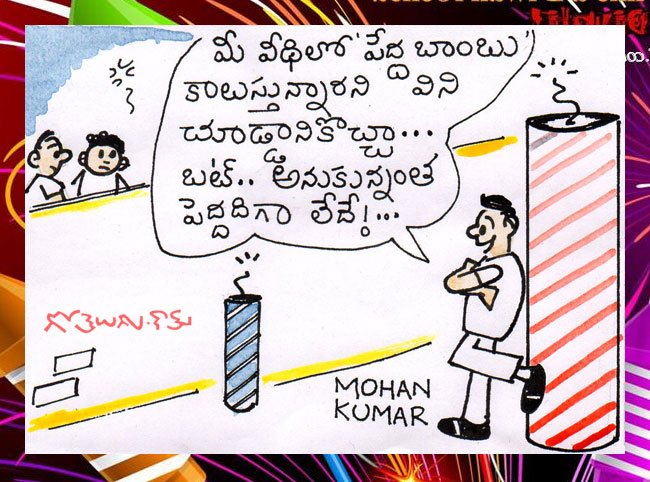 మీ వీధిలో 'పేద్ద బాంబు'
కాలుస్తున్నారని విని
చూడ్డానికొచ్చా...
బట్.. అనుకున్నంత
పెద్దదిగా లేదే!...
గోతెలుగు.కామ్
MOHAN
KUMAR